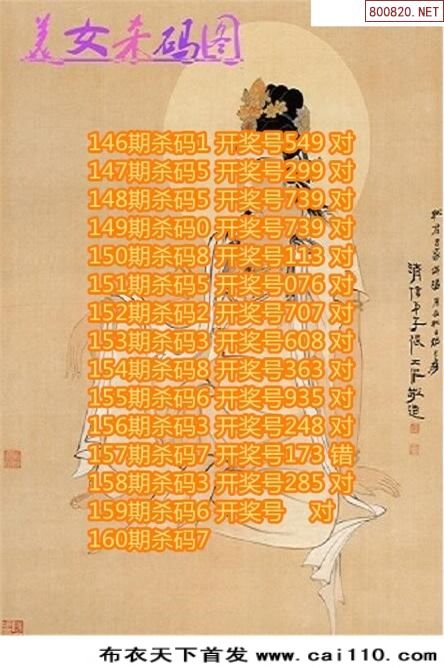 800820.NET
美女杀码图
146期杀码1 开奖号549 对
147期杀码5 开奖号299 对
148期杀码5 开奖号739 对
149期杀码0 开奖号739 对
150期杀码8 开奖号113 对
151期杀码5 开奖号076 对
152期杀码2 开奖号707 对
153期杀码3 开奖号608 对
154期杀码8 开奖号363 对
155期杀码6 开奖号935 对
156期杀码3 开奖号248 对
157期杀码7 开奖号173 错
158期杀码3 开奖号285 对
159期杀码6 开奖号 对
160期杀码7
布衣天下首发 www.cai110.com